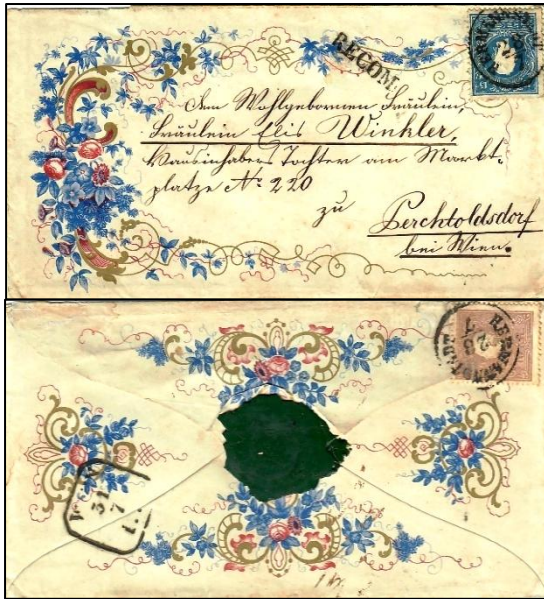 RECOM.
Dem Wohlgebornen Fräulein,
Fräulein Elis Winkler,
Hausinhabers Tochter am Markt-
platze No 220
zu
Perchtoldsdorf
bei Wien.
HERMANNSTADT
28
7
31
7